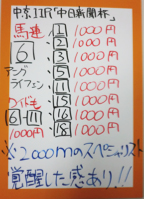 中京11R「中日新聞杯」
馬連 1 1000円
6 2 1000円
3 1000円
テン 5 1000円
ライフェン 11 1000円
ワイドも 15 1000円
6-11 16 1000円
1000円 18 1000円
※2000mのスペシャリスト
覚醒した感あり!!